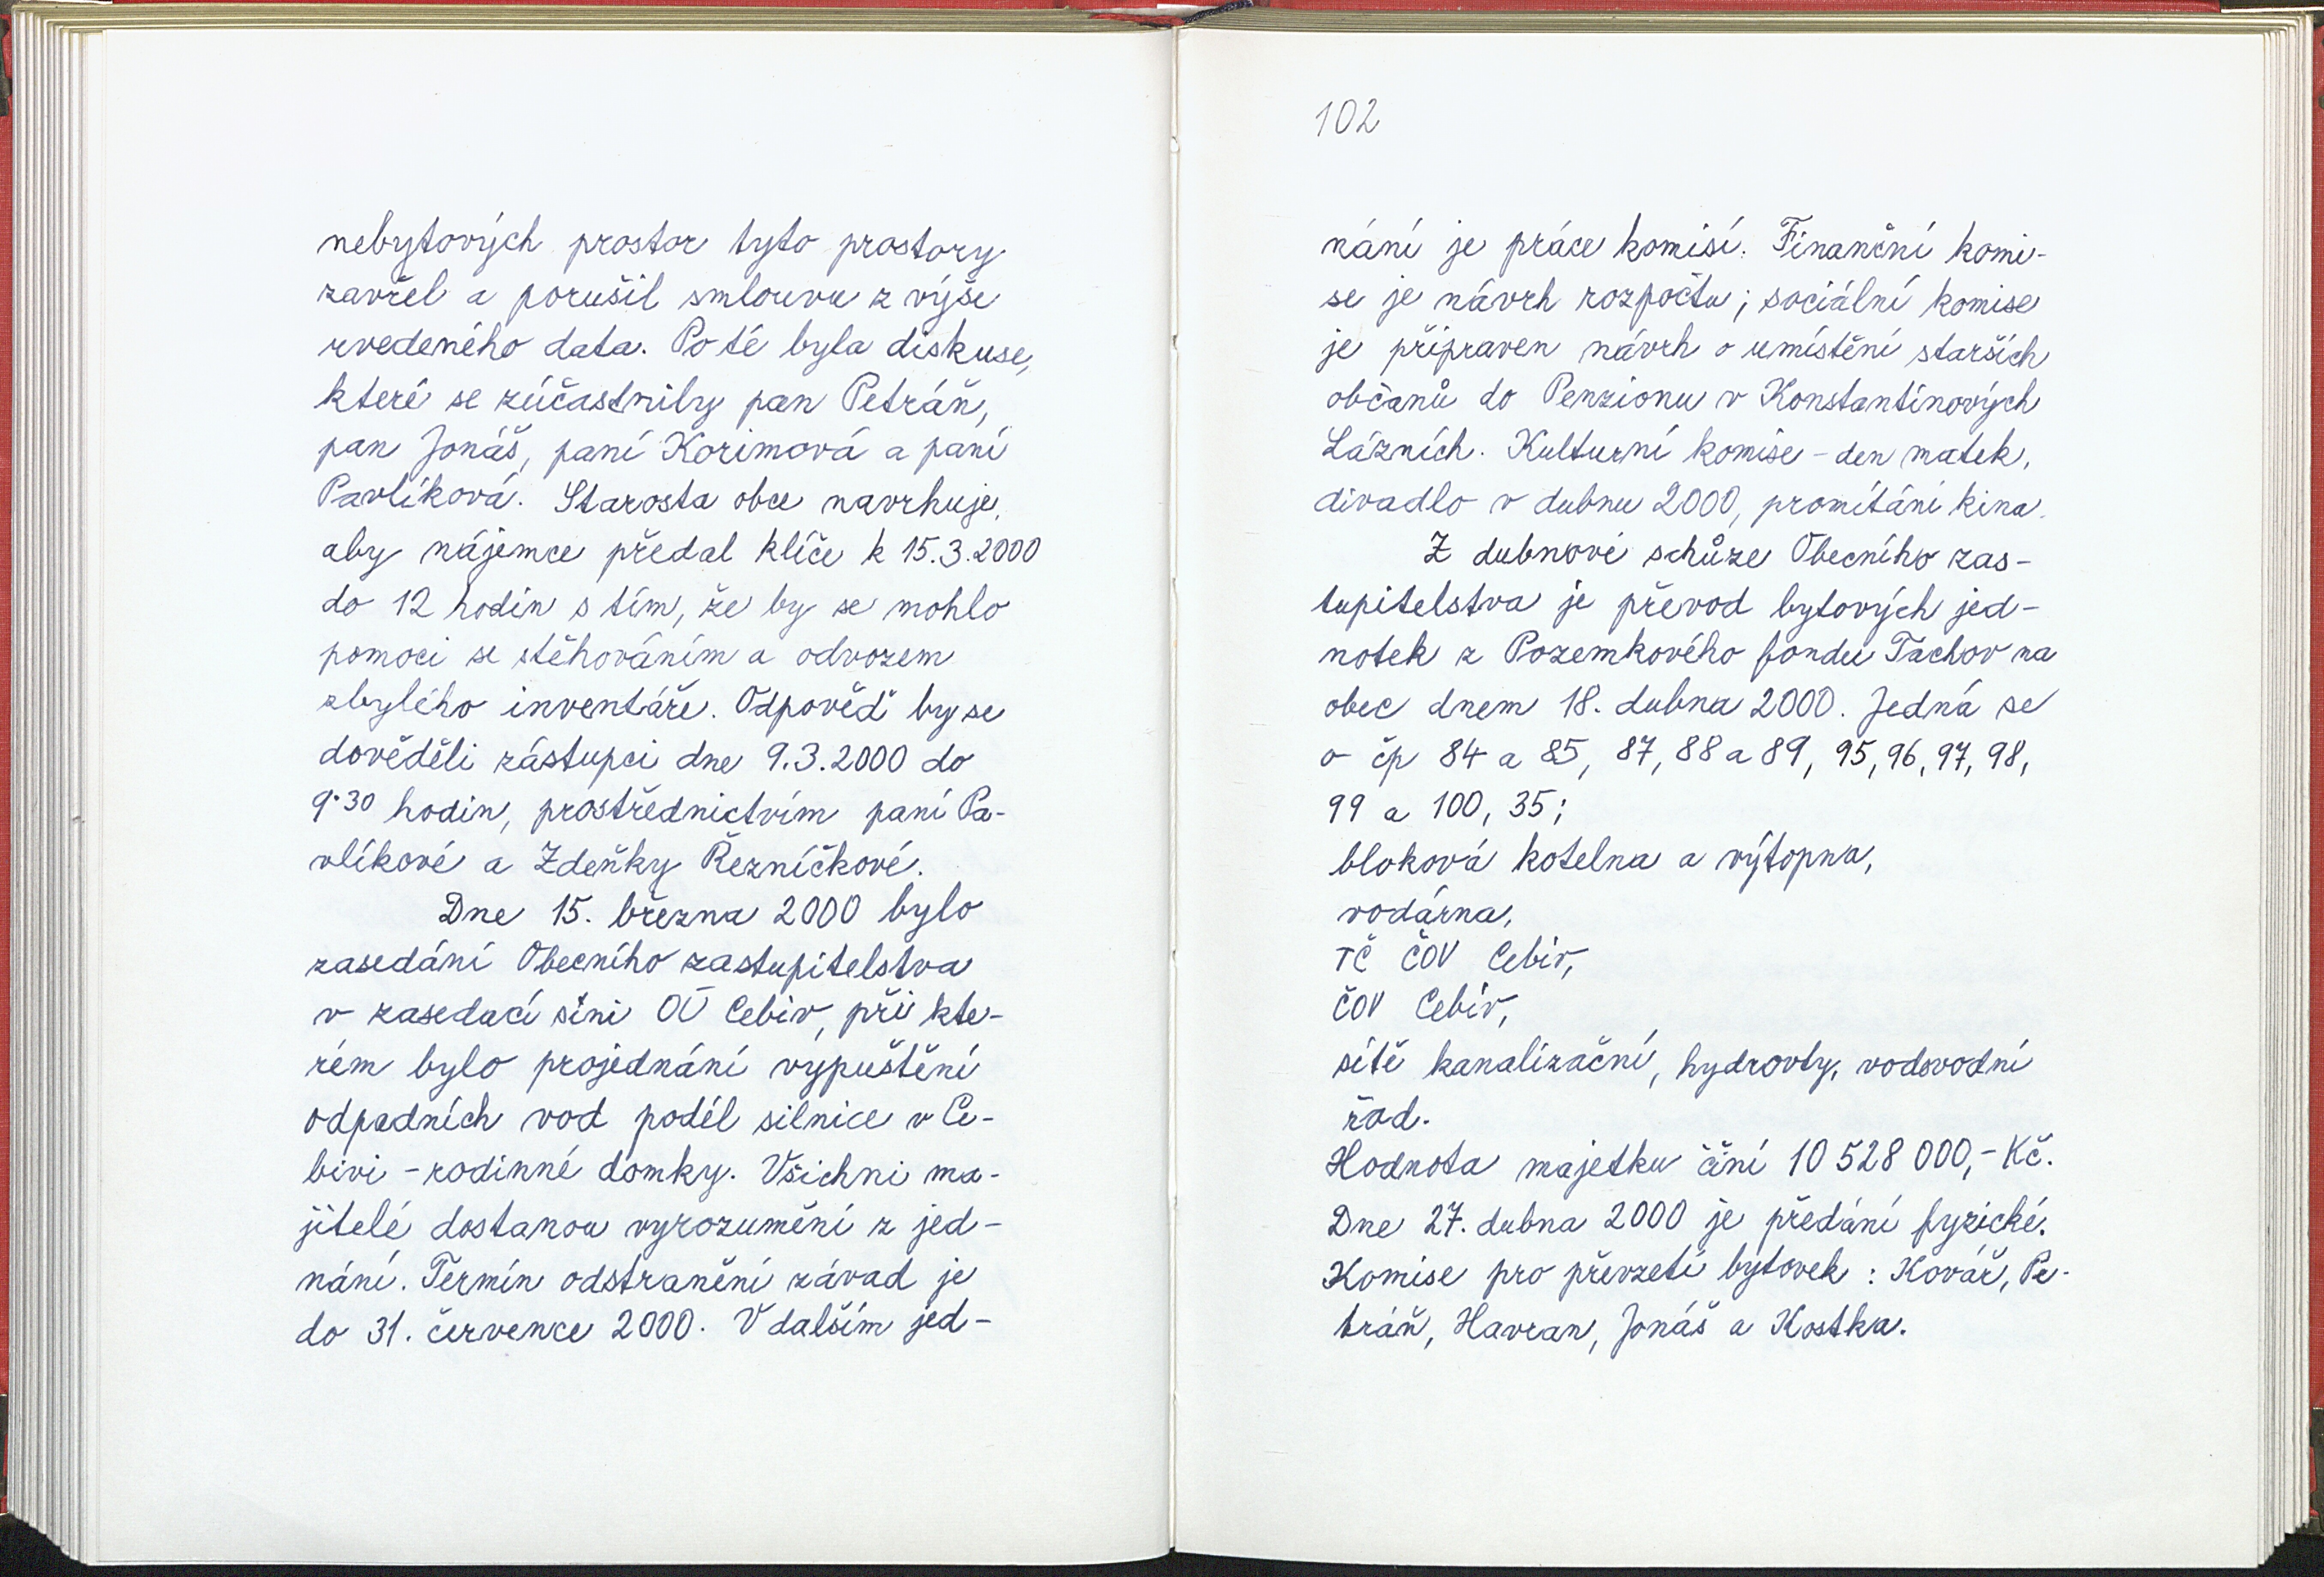 nebytových prostor tyto prostory
zavřel a porušil smlouvu z výše
uvedeného data. Po té byla diskuse,
které se zúčastnily pan Petráň,
pan Jonáš, paní Korimová a paní
Pavlíková. Starosta obce navrhuje,
aby nájemce předal klíče k 15.3.2000
do 12 hodin s tím, že by se mohlo
pomoci se stěhováním a odvozem
zbylého inventáře. Odpověď by se
dověděli zástupci dne 9.3.2000 do
9.30 hodin, prostřednictvím paní Pa-
vlíkové a Zdeňky Řezníčkové.
Dne 15. března 2000 bylo
zasedání Obecního zastupitelstva
v zasedací síni OÚ Cebiv, při kte-
rém bylo projednání vypuštění
odpadních vod podél silnice v Ce-
bivi - rodinné domky. Všichni ma-
jitelé dostanou vyrozumění z jed-
nání. Termín odstranění závad je
do 31. července 2000. V dalším jed-
102
nání je práce komisí. Finanční komi-
se je návrh rozpočtu; sociální komise
je připraven návrh o umístění starších
občanů do Penzionu v Konstantinových
Lázních. Kulturní komise - den matek,
divadlo v dubnu 2000, promítání kina.
Z dubnové schůze Obecního zas-
tupitelstva je převod bytových jed-
notek z Pozemkového fondu Tachov na
obec dnem 18. dubna 2000. Jedná se
o čp 84 a 85, 87, 88 a 89, 95, 96, 97, 98,
99 a 100, 35;
bloková kotelna a výtopna,
vodárna,
TČ ČOV Cebiv,
ČOV Cebiv,
sítě kanalizační, hydrovty, vodovodní
řad.
Hodnota majetku činí 10 528 000,- Kč.
Dne 27. dubna 2000 je předání fyzické.
Komise pro převzetí bytovek: Kovář, Pe-
tráň, Havran, Jonáš a Kostka.